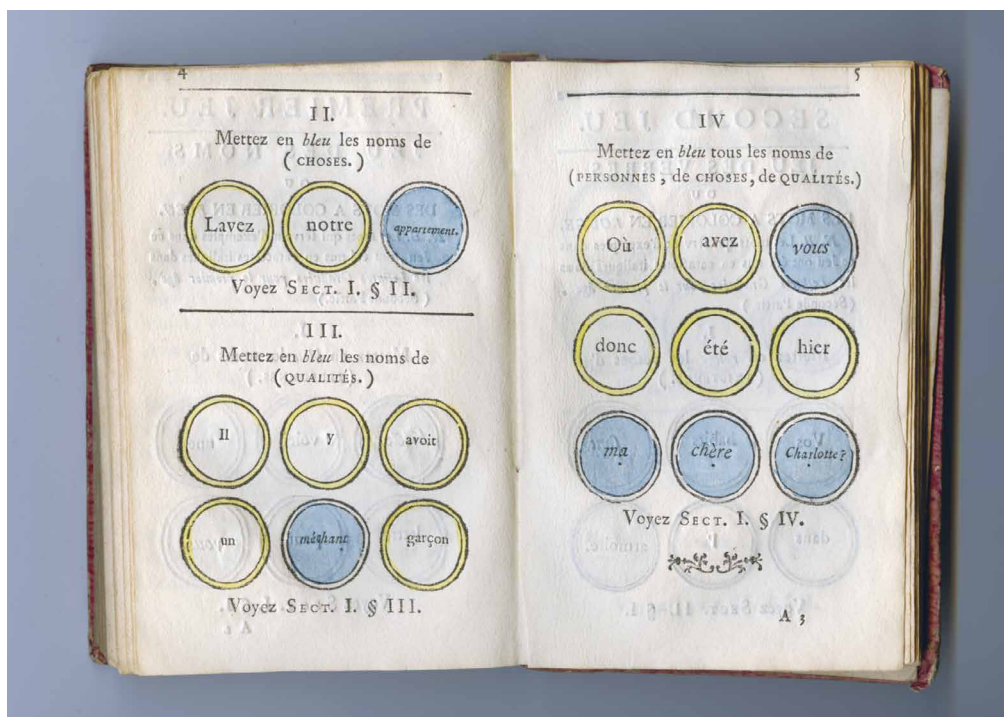 4
II.
Mettez en bleu les noms de
(CHOSES.)
Lavez notre appartement.
Voyez SECT. I. § II.
III.
Mettez en bleu les noms de
(QUALITÉS.)
Il y avoit
un méchant garçon
Voyez SECT. I. § III.
5
IV
Mettez en bleu tous les noms de
(PERSONNES, de CHOSES, de QUALITÉS.)
Où avez vous
donc été hier
ma chère Charlotte?
Voyez SECT. I. § IV.
A 3